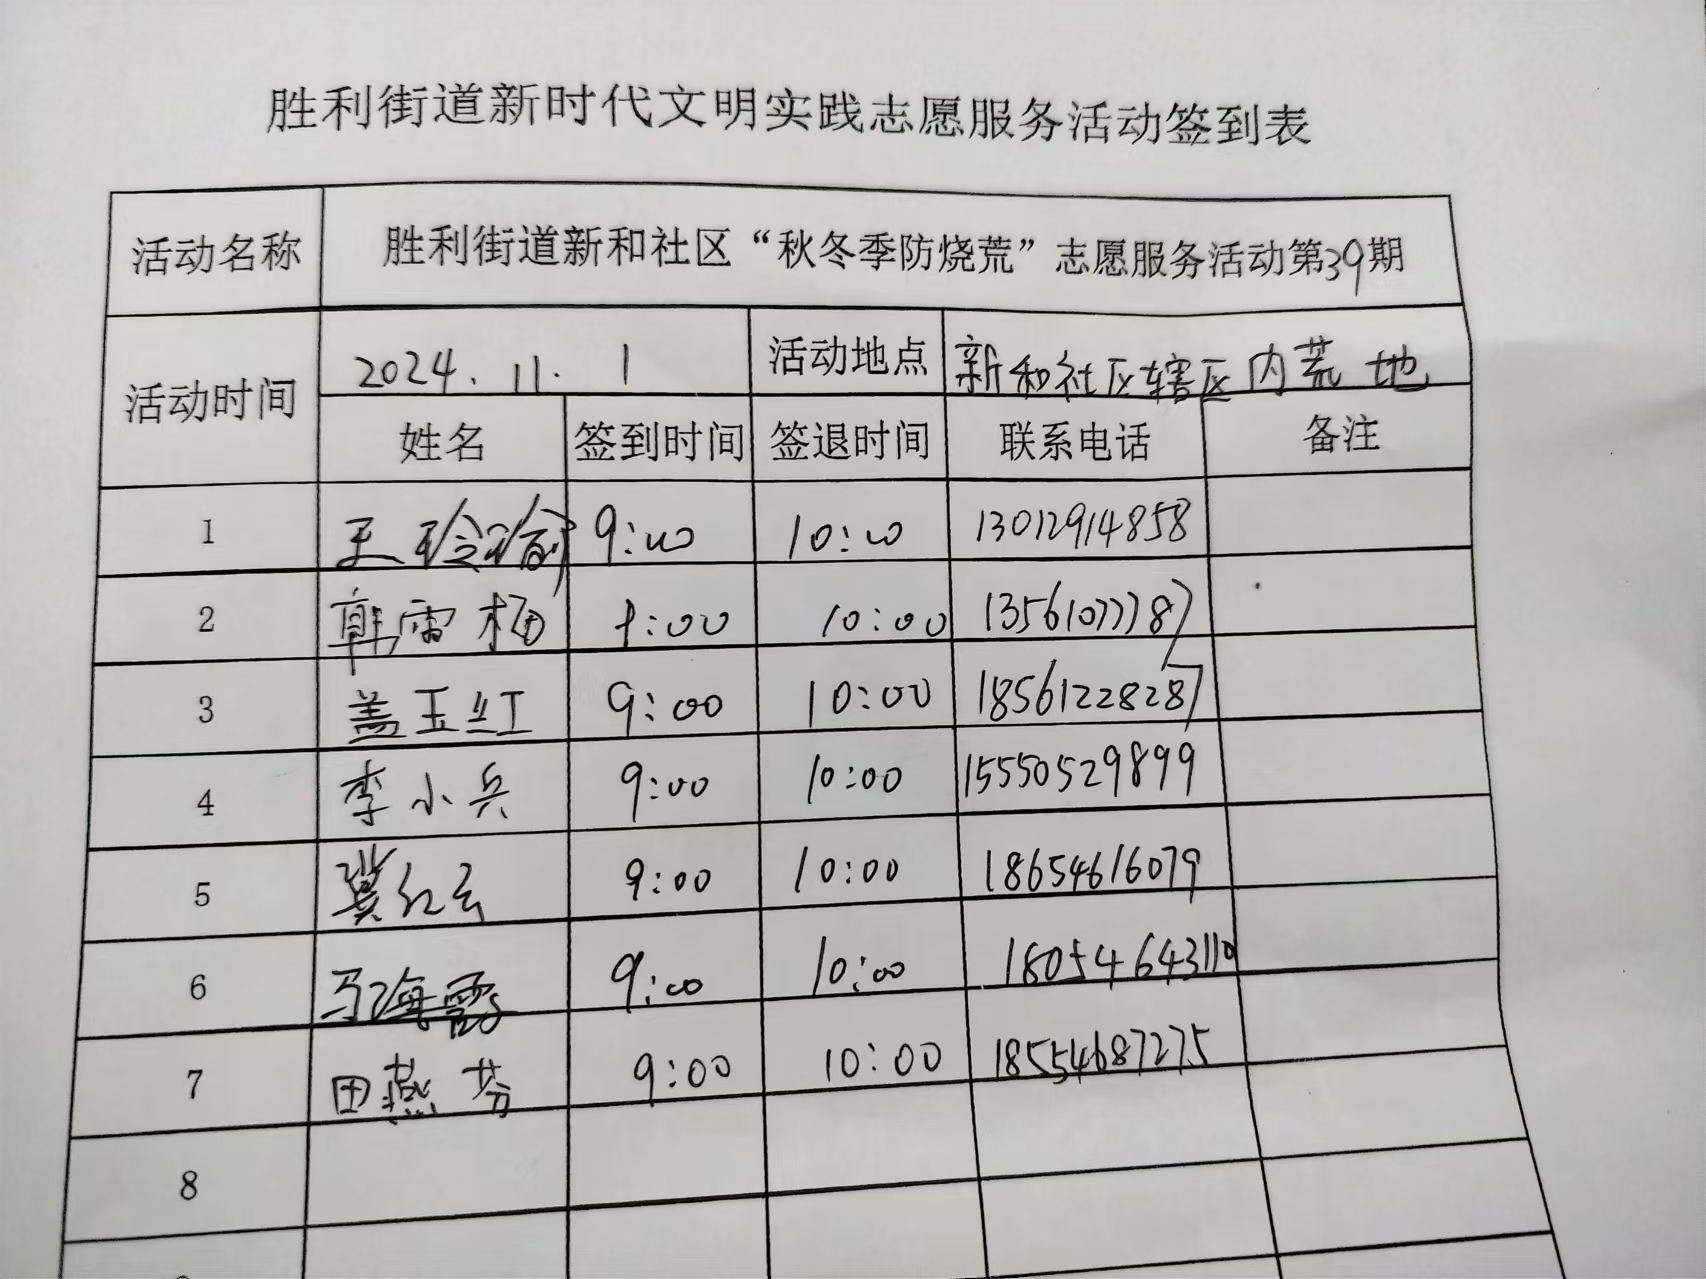 胜利街道新时代文明实践志愿服务活动签到表
活动名称 胜利街道新和社区“秋冬季防烧荒”志愿服务活动第39期
活动时间 2024.11.1 活动地点 新和社区辖区内荒地
姓名 签到时间 签退时间 联系电话 备注
1 王 9:00 10:00 13012914858
2 韩雷 9:00 10:00 13561077787
3 盖玉红 9:00 10:00 18561228287
4 李小兵 9:00 10:00 15550529899
5 冀红云 9:00 10:00 18654616079
6 马海霞 9:00 10:00 18054643110
7 田燕芬 9:00 10:00 18554687275
8